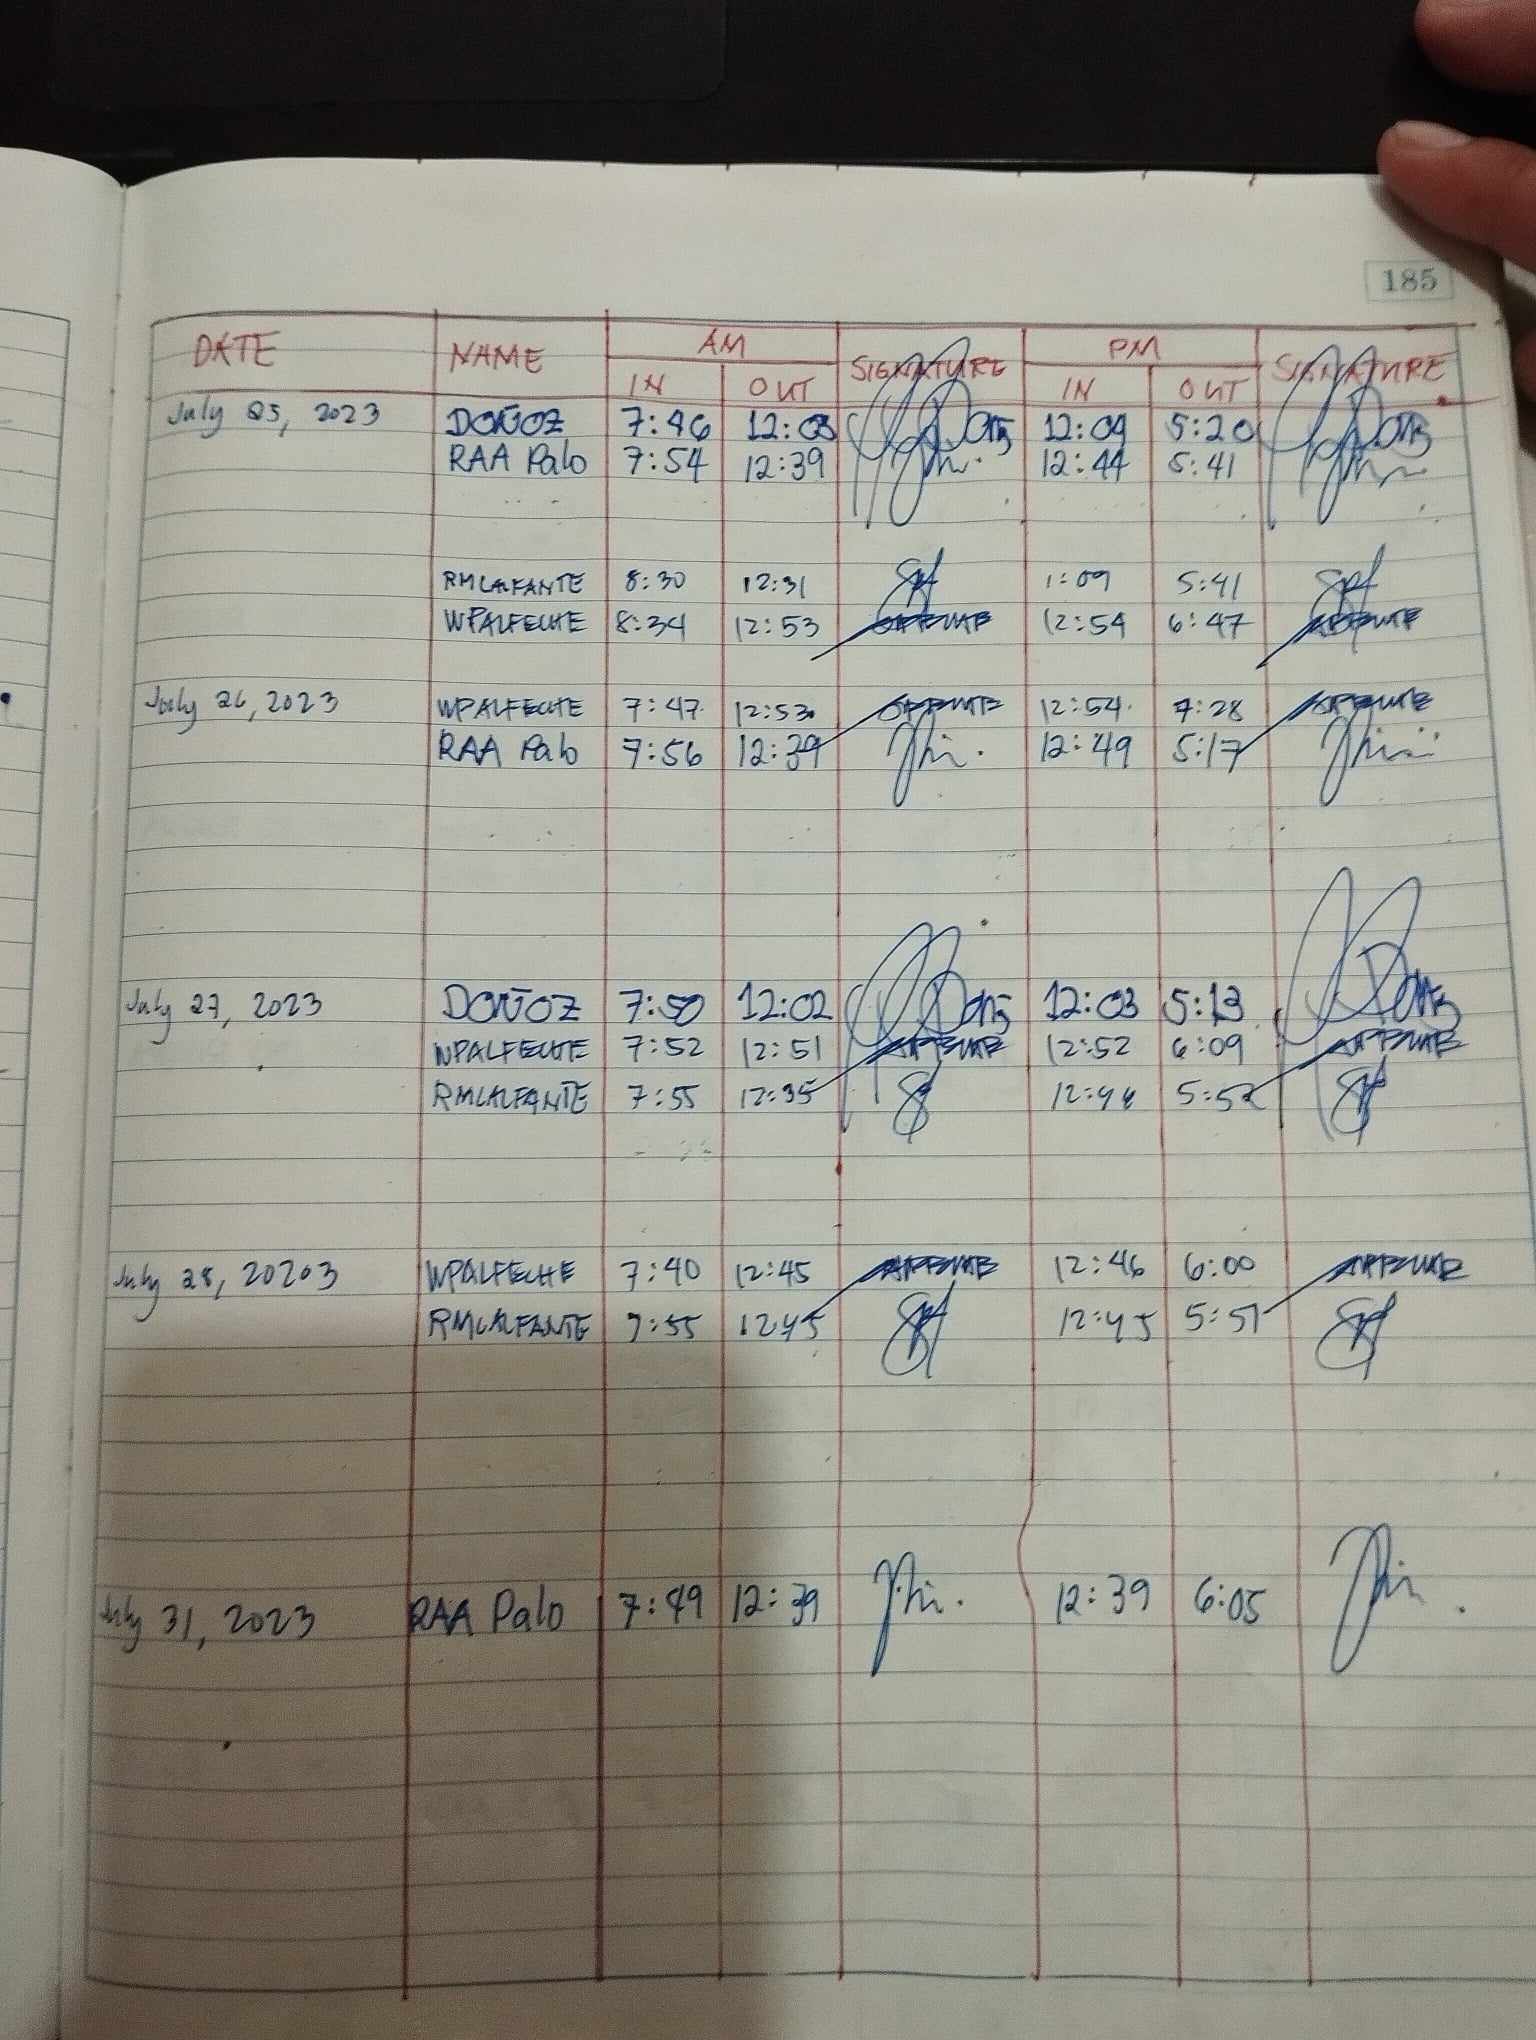 185
DATE NAME AM SIGNATURE PM SIGNATURE
IN OUT IN OUT
July 25, 2023 DOÑOZ 7:46 12:03 12:04 5:20
RAA Palo 7:54 12:39 12:44 5:41
RMCALFANTE 8:30 12:31 1:09 5:41
WPALFECHE 8:34 12:53 12:54 6:47
July 26, 2023 WPALFECHE 7:47 12:53 12:54 7:28
RAA Palo 7:56 12:39 12:49 5:17
July 27, 2023 DOÑOZ 7:50 12:02 12:03 5:13
WPALFECHE 7:52 12:51 12:52 6:09
RMCALFANTE 7:55 12:35 12:44 5:52
July 28, 20203 WPALFECHE 7:40 12:45 12:46 6:00
RMCALFANTE 7:55 12:45 12:45 5:51
July 31, 2023 RAA Palo 7:49 12:39 12:39 6:05